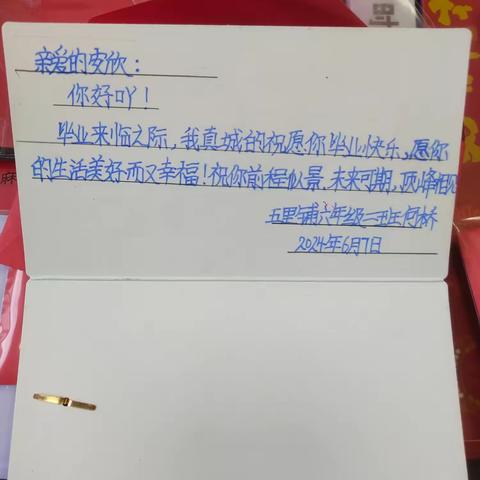 亲爱的安欣：
你好吖！
毕业来临之际，我真城的祝愿你毕业快乐，愿你
的生活美好而又幸福！祝你前程似景，未来可期，顶峰相见
五里铺六年级三班何桥
2024年6月7日